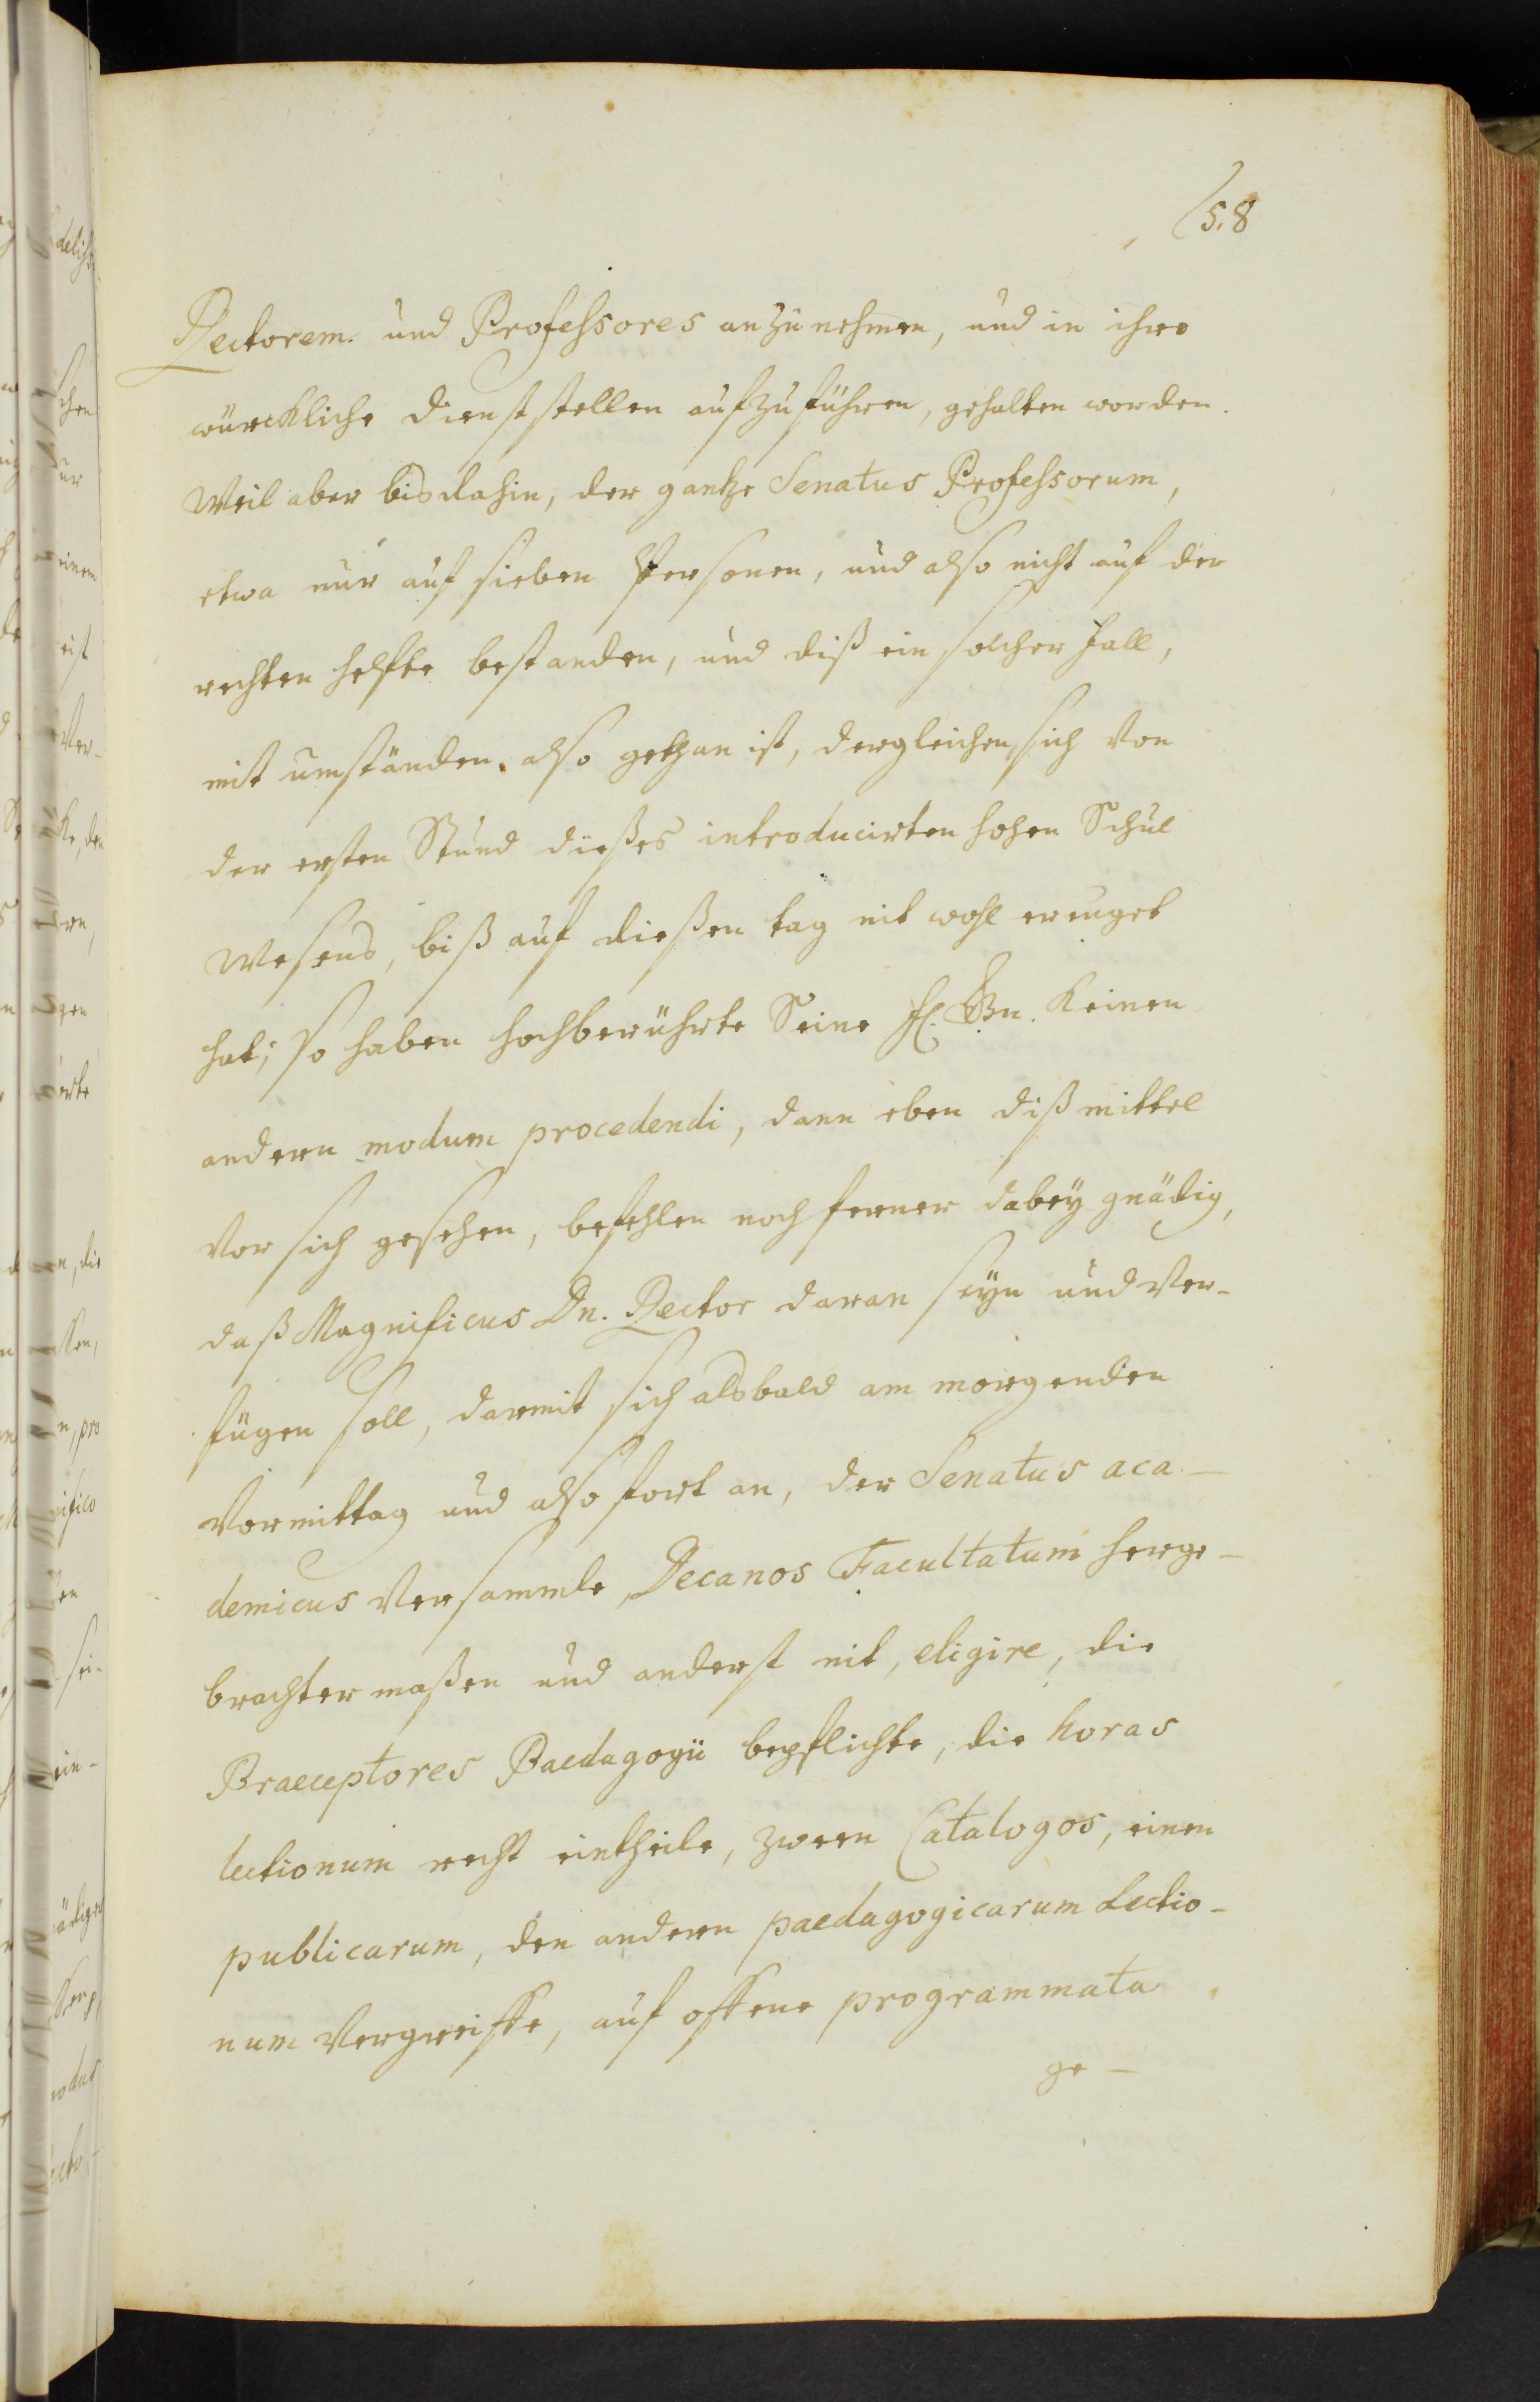 58
Rectorem. und Professores anzunehmen, und in ihre
würckliche dienststellen aufzuführen, gehalten worden.
Weil aber bis dahin, der gantze Senatus Professorum,
etwa nur auf sieben Personen, und also nicht auf der
rechten helfte bestanden, und diß ein solcher fall,
mit umständen also gethan ist, dergleichen sich von
der ersten Stund dießes introducirten hohen Schul
Wesens, biß auf dießen tag nit wohl ereuget
hat; so haben hochberührte Seine keinen
andern modum procedendi, dann eben diß mittel
vor sich gesehen, befehlen noch ferner dabey gnädig,
daß Magnificus Dn. Rector daran seyn und Ver-
fügen soll, darmit sich alsbald am morgenden
Vormittag und also fort an, der Senatus aca-
demicus Versammle, Decanos Facultatum herge-
brachter maßen und anderst nit, eligire, die
Praeceptores Paedagogii bepflichte, die horas
lectionum recht eintheile, zween Catalogos, einen
publicarum, den andern paedagogicarum Lectio-
num Vergreiffe, auf offene programmata
ge-